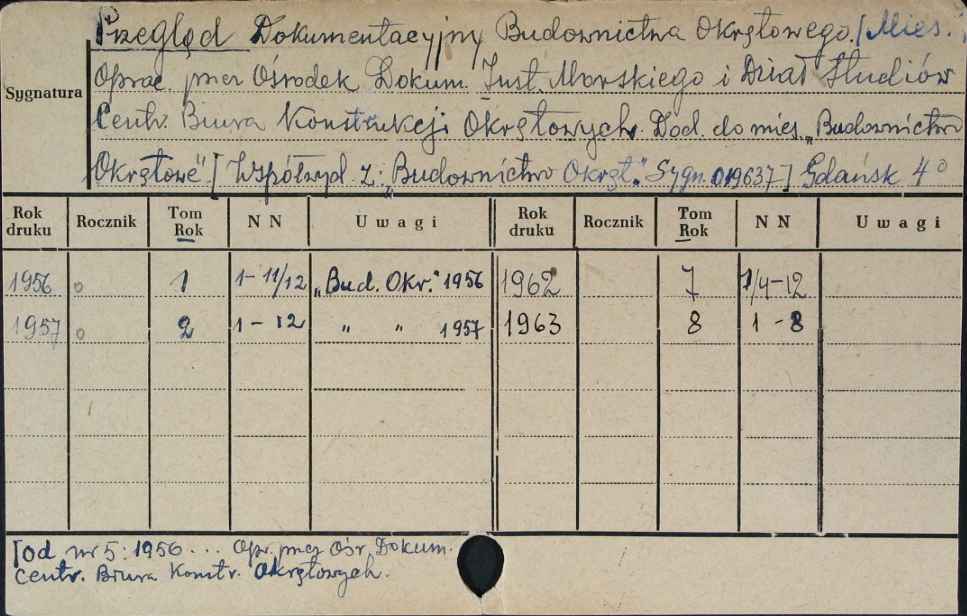 Przegląd Dokumentacyjny Budownictwa Okrętowego. [Mies.
Oprac. przez Ośrodek Dokum. Inst. Morskiego i Dział Studiów
Sygnatura
Centr. Biura Konstrukcji Okrętowych. Dod. do mies. „Budownictwo
Okrętowe" [Współwyd. z: „Budownictwo Okręt." Sygn. 019637] Gdańsk 4°
Rok druku Rocznik Tom Rok N N Uwagi Rok druku Rocznik Tom Rok N N Uwagi
1956 o 1 1-11/12 „Bud. Okr." 1956 1962 7 1/4-12
1957 o 2 1-12 „ „ 1957 1963 8 1-8
[od nr 5: 1956 ... Opr. przez Ośr. Dokum.
Centr. Biura Konstr. Okrętowych.